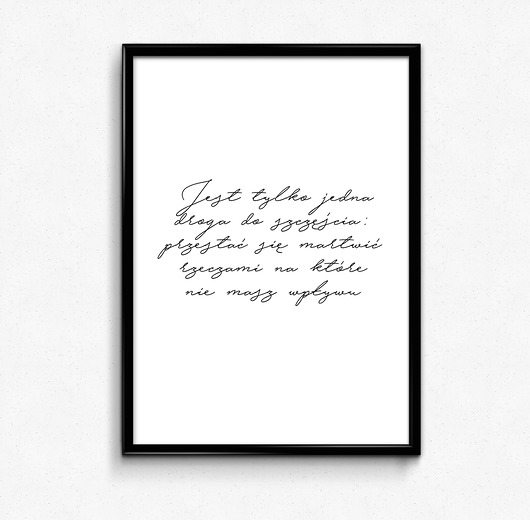 Jest tylko jedna
droga do szczęścia:
przestać się martwić
rzeczami na które
nie masz wpływu